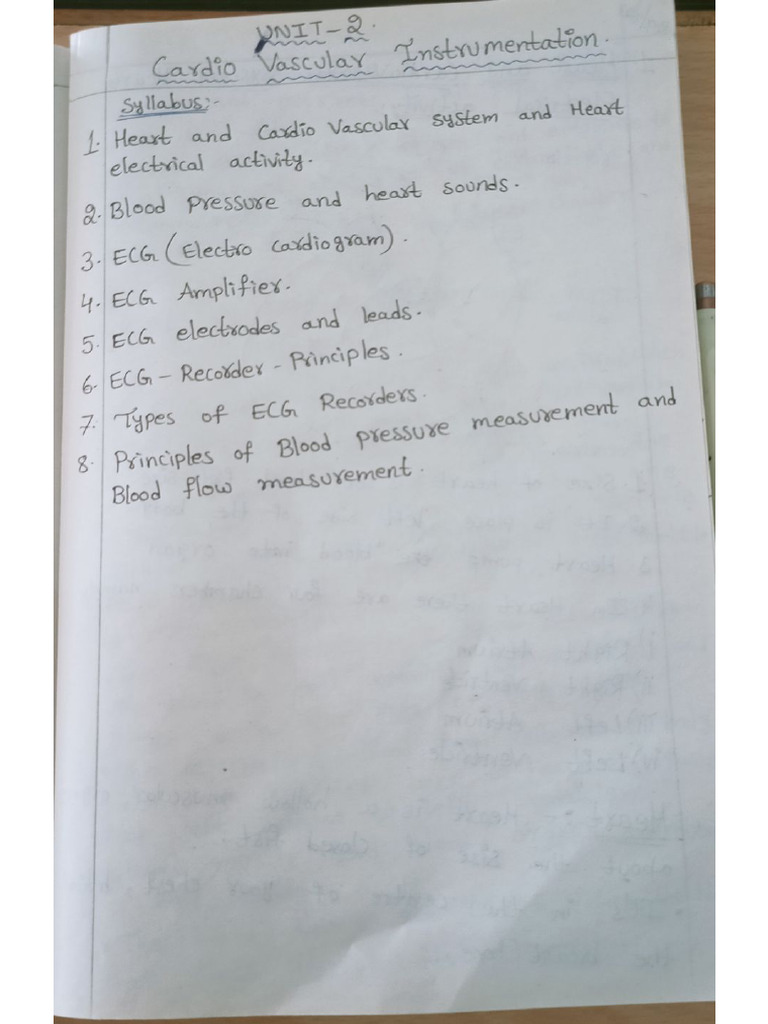 UNIT-2.
Cardio Vascular Instrumentation.
Syllabus:-
1. Heart and Cardio Vascular system and Heart
electrical activity.
2. Blood Pressure and heart sounds.
3. ECG (Electro cardiogram).
4. ECG Amplifier.
5. ECG electrodes and leads.
6. ECG - Recorder - Principles.
7. Types of ECG Recorders.
8. Principles of Blood pressure measurement and
Blood flow measurement.